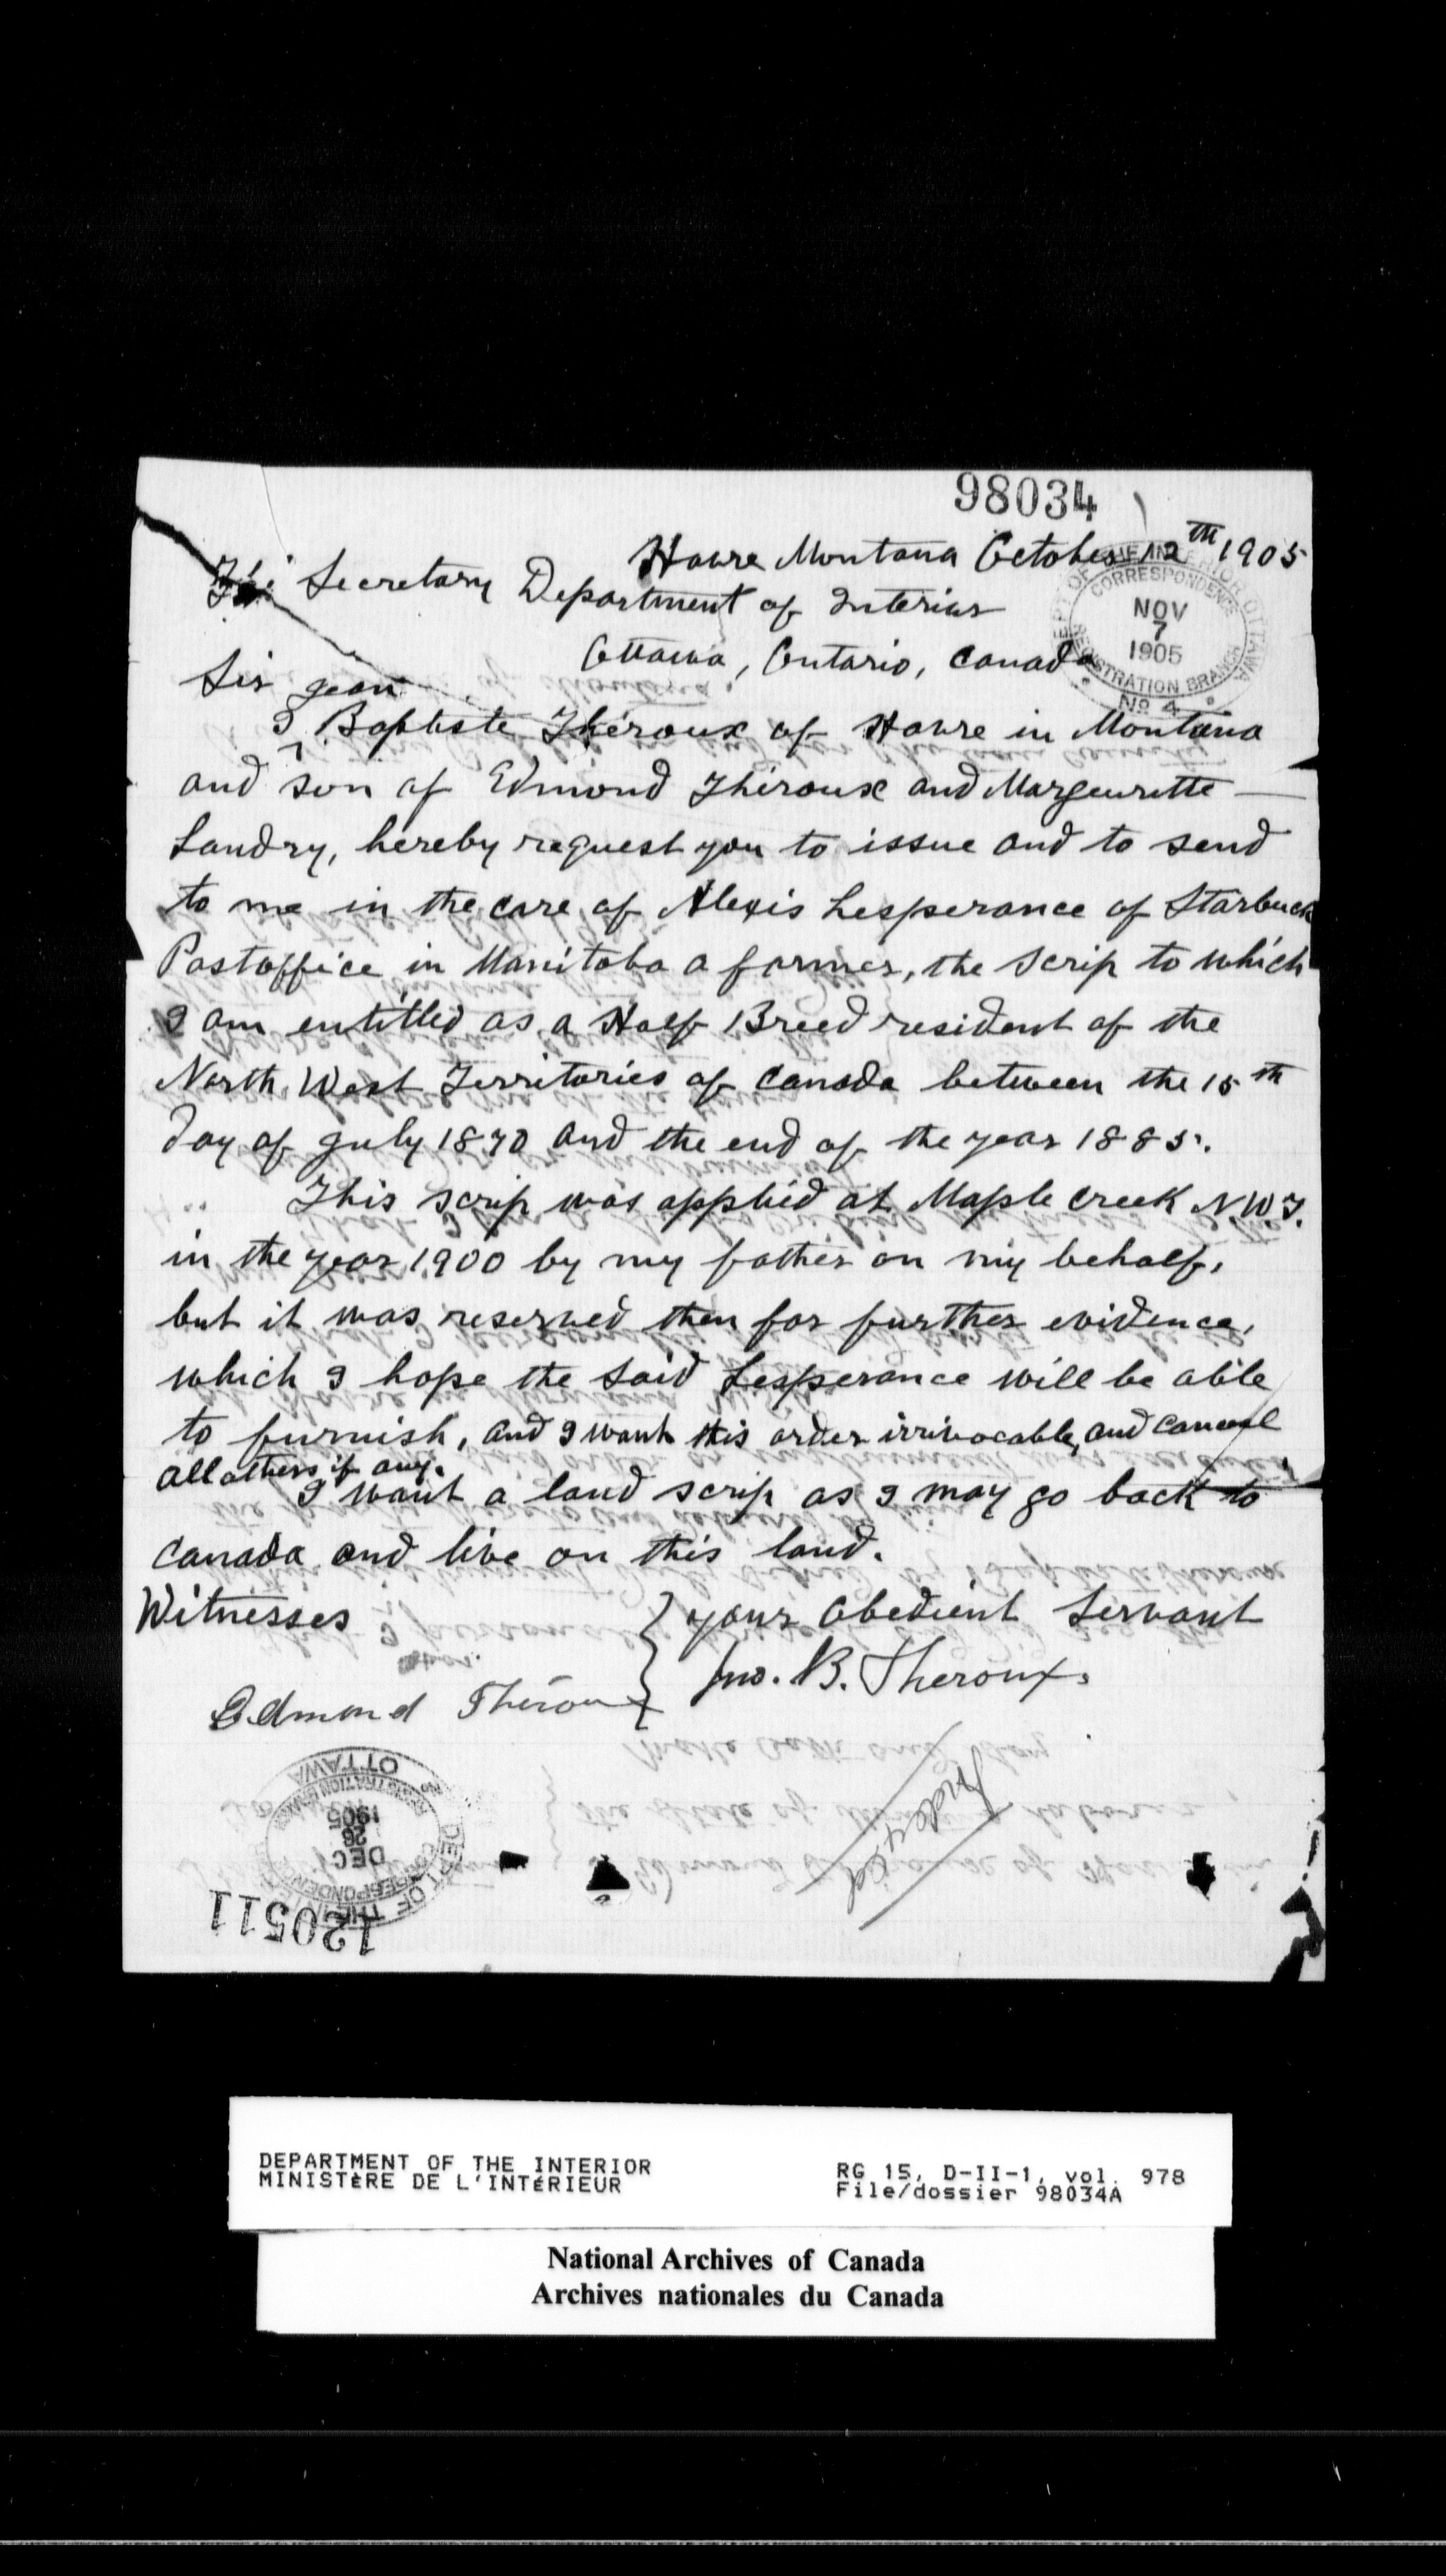 98034
Havre Montana October 12th 1905
The Secretary Department of Interior
Ottawa, Ontario, Canada
DEPT OF THE INTERIOR OTTAWA
CORRESPONDENCE
NOV
7
1905
REGISTRATION BRANCH
No 4
Sir Jean
I ^ Baptiste Théroux of Havre in Montana
and son of Edmond Théroux and Margeurette
Landry, hereby request you to issue and to send
to me in the care of Alexis Lesperance of Starbuck
Postoffice in Manitoba a farmer, the scrip to which
I am entitled as a Half Breed resident of the
North West Territories of Canada between the 15th
day of July 1870 and the end of the year 1885.
This scrip was applied at Maple Creek N.W.T.
in the year 1900 by my father on my behalf,
but it was reserved then for further evidence,
which I hope the said Lesperance will be able
to furnish, and I want this order irrivocable, and cancel
all others if any.
I want a land scrip as I may go back to
Canada and live on this land.
Witnesses } your Obedient Servant
Edmond Théroux } Jno. B. Theroux.
Indexed
DEPT OF THE INTERIOR
CORRESPONDENCE
DEC
26
1905
REGISTRATION BRANCH
OTTAWA
120511
DEPARTMENT OF THE INTERIOR
MINISTÈRE DE L'INTÉRIEUR
RG 15, D-II-1, vol. 978
File/dossier 98034A
National Archives of Canada
Archives nationales du Canada